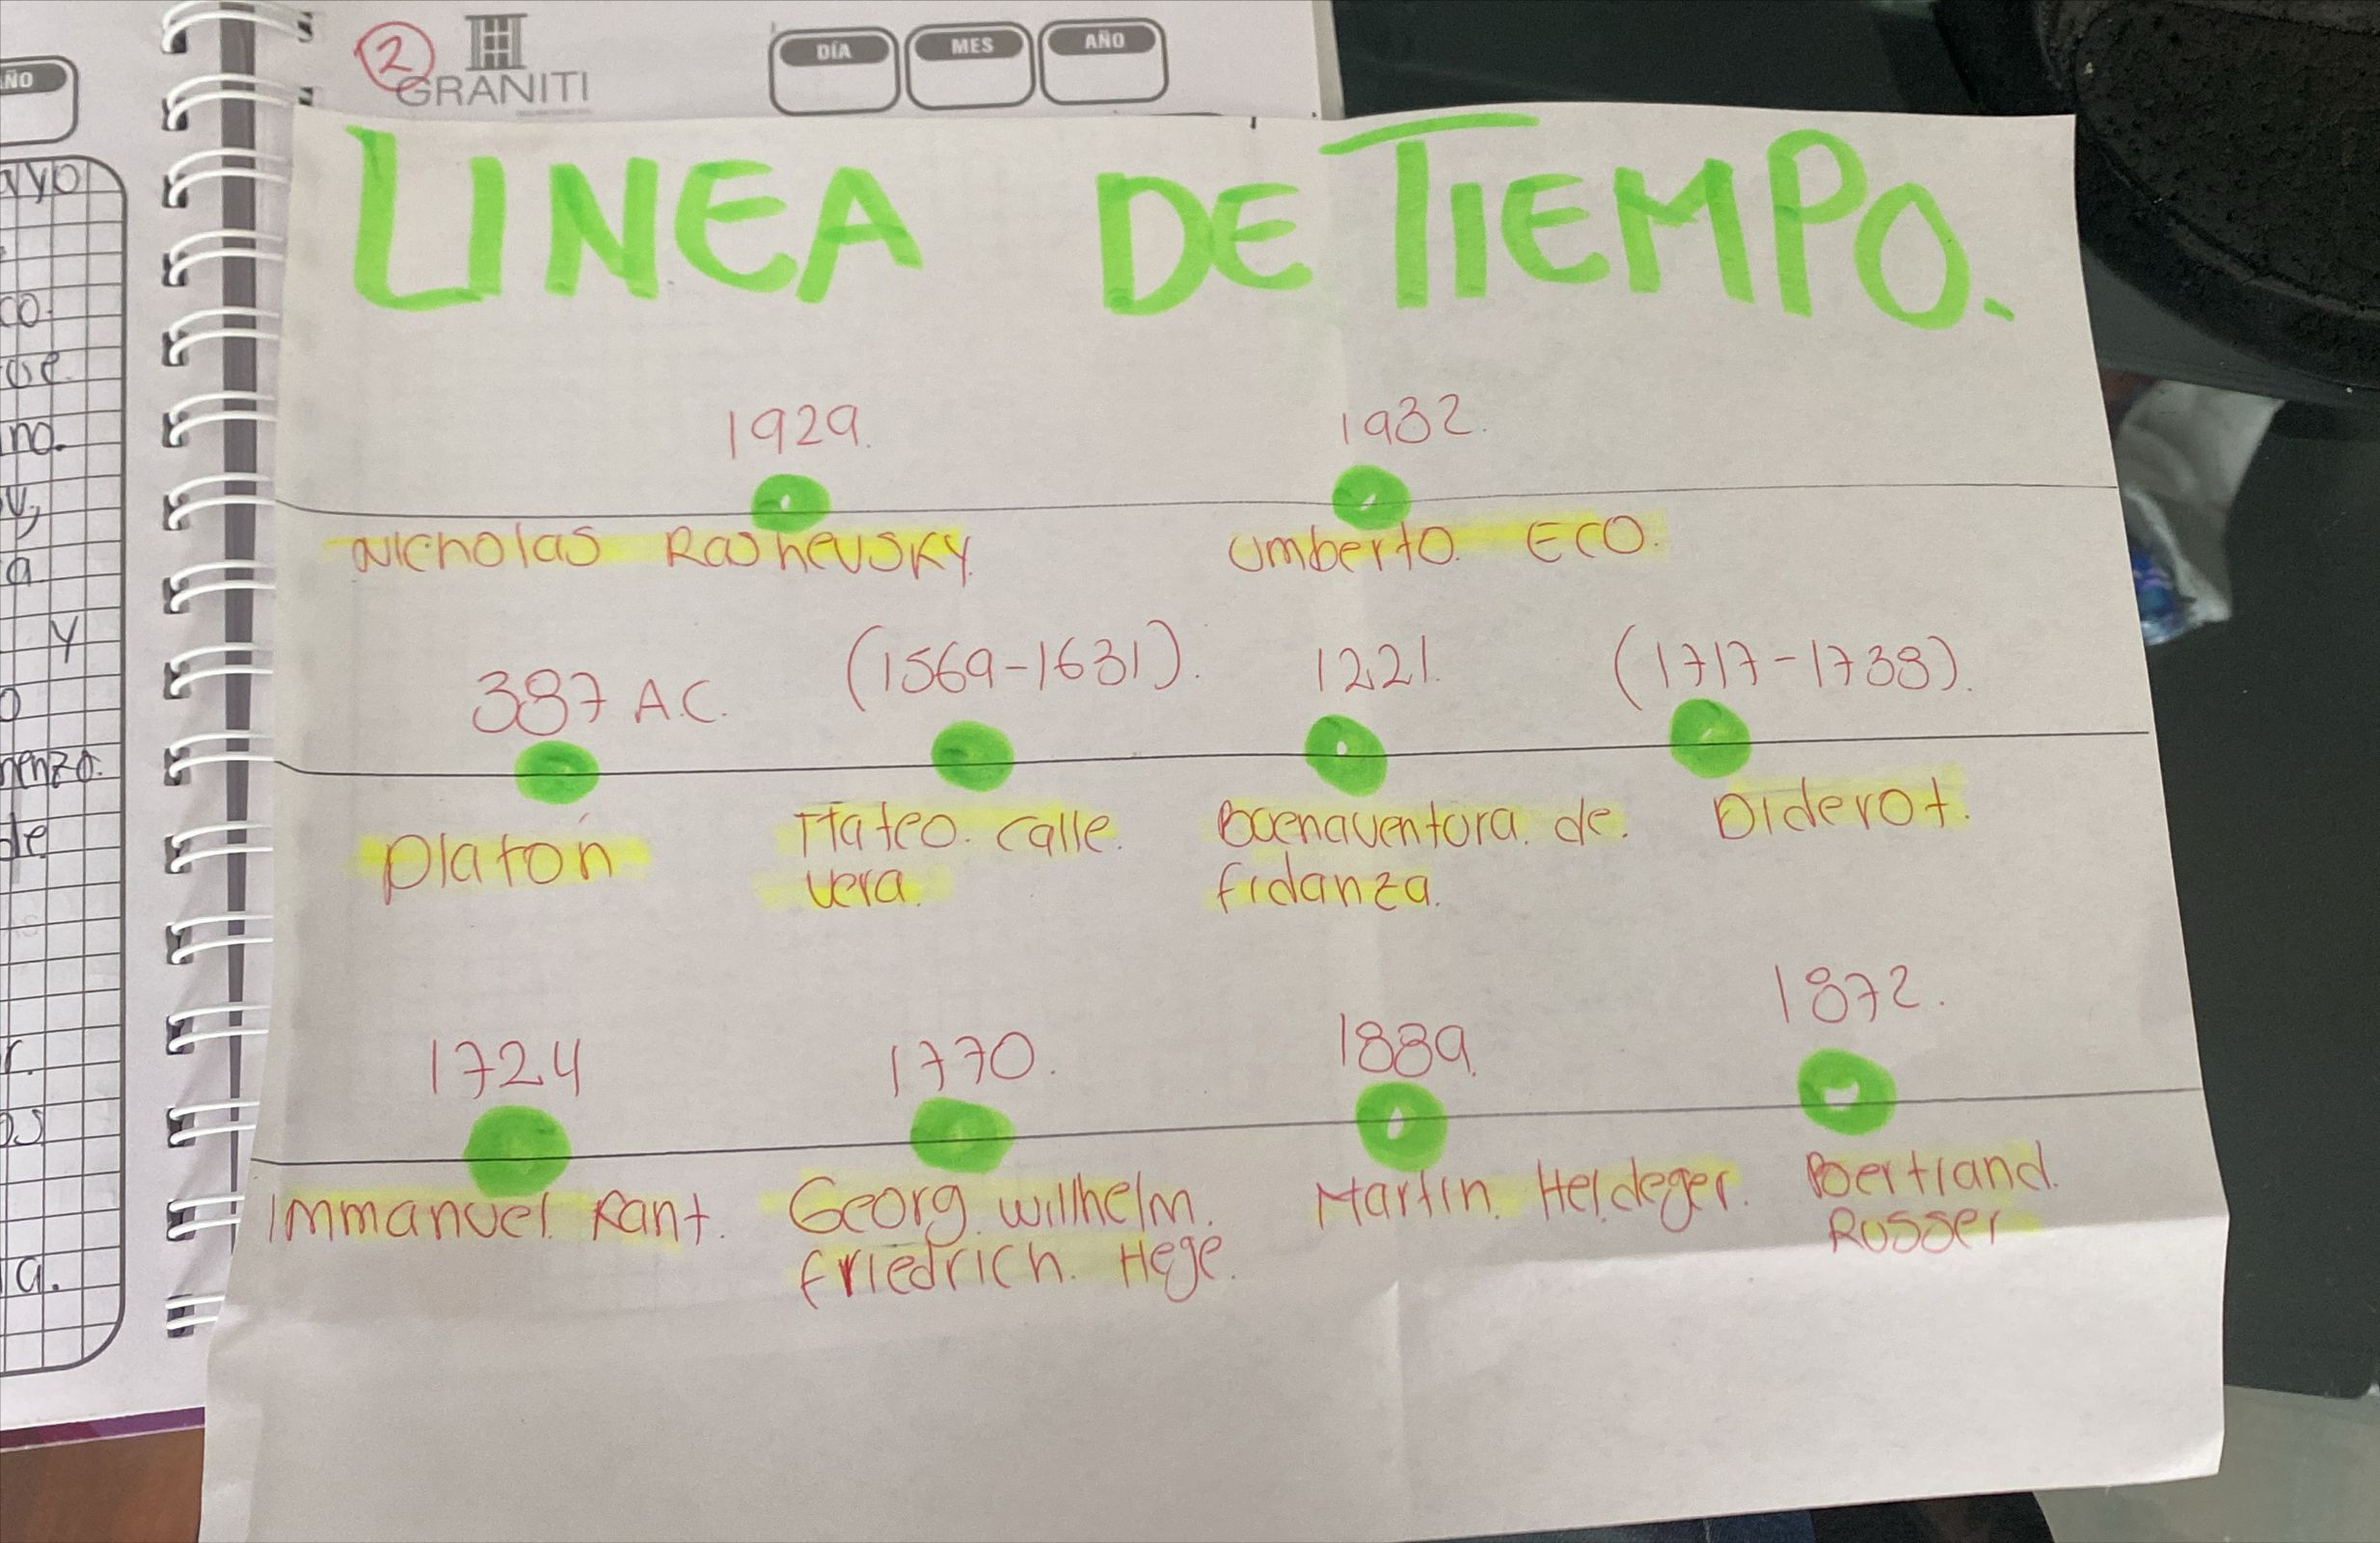 2
GRANITI
DÍA MES AÑO
LINEA DE TIEMPO.
1929. 1932.
Nicholas Rashevsky. Umberto. ECO.
387 A.C. (1569-1631). 1221. (1717-1738).
Platón Mateo. calle. Buenaventura. de. Diderot.
vera. fidanza.
1724 1770. 1889. 1872.
Immanuel. Kant. Georg. willhelm. Martin. Heideger. Bertrand.
friedrich. Hege. Russer
ayo
co.
no.
a
y
menzo.
de
r.
os
a.